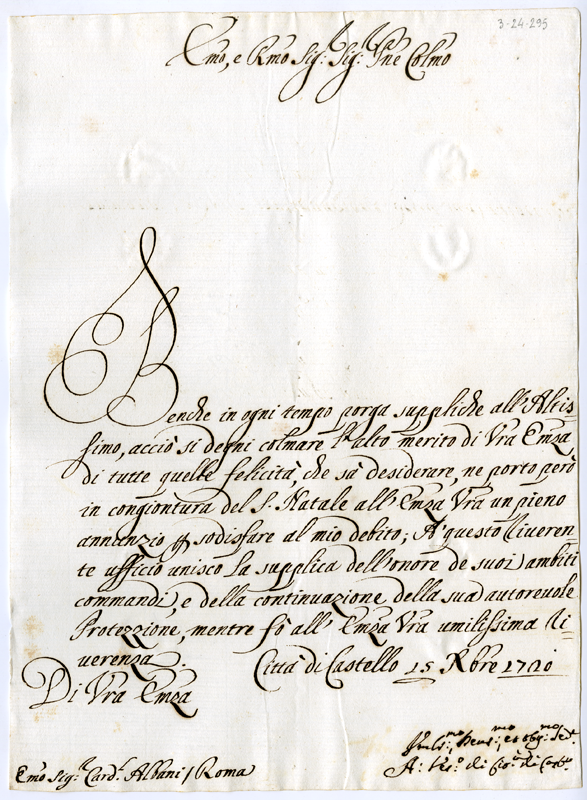 3-24-295
Emo, e Rmo Sig.r Sig.r Pne Colmo
Benche in ogni tempo porga suppliche all'Altis
simo, acciò si degni colmare l'alto merito di Vra Emza
di tutte quelle felicità, che sà desiderare, ne porto però
in congiontura del S. Natale all'Emza Vra un pieno
annunzio p sodisfare al mio debito; A questo riveren-
te ufficio unisco la supplica dell'onore de suoi ambiti
commandi, e della continuazione della sua autorevole
Protezzione, mentre fò all'Emza Vra umilissima ri-
verenza.
Città di Castello 15 Xbre
Di Vra Emza
Emo Sig.r Card.l Albani / Roma